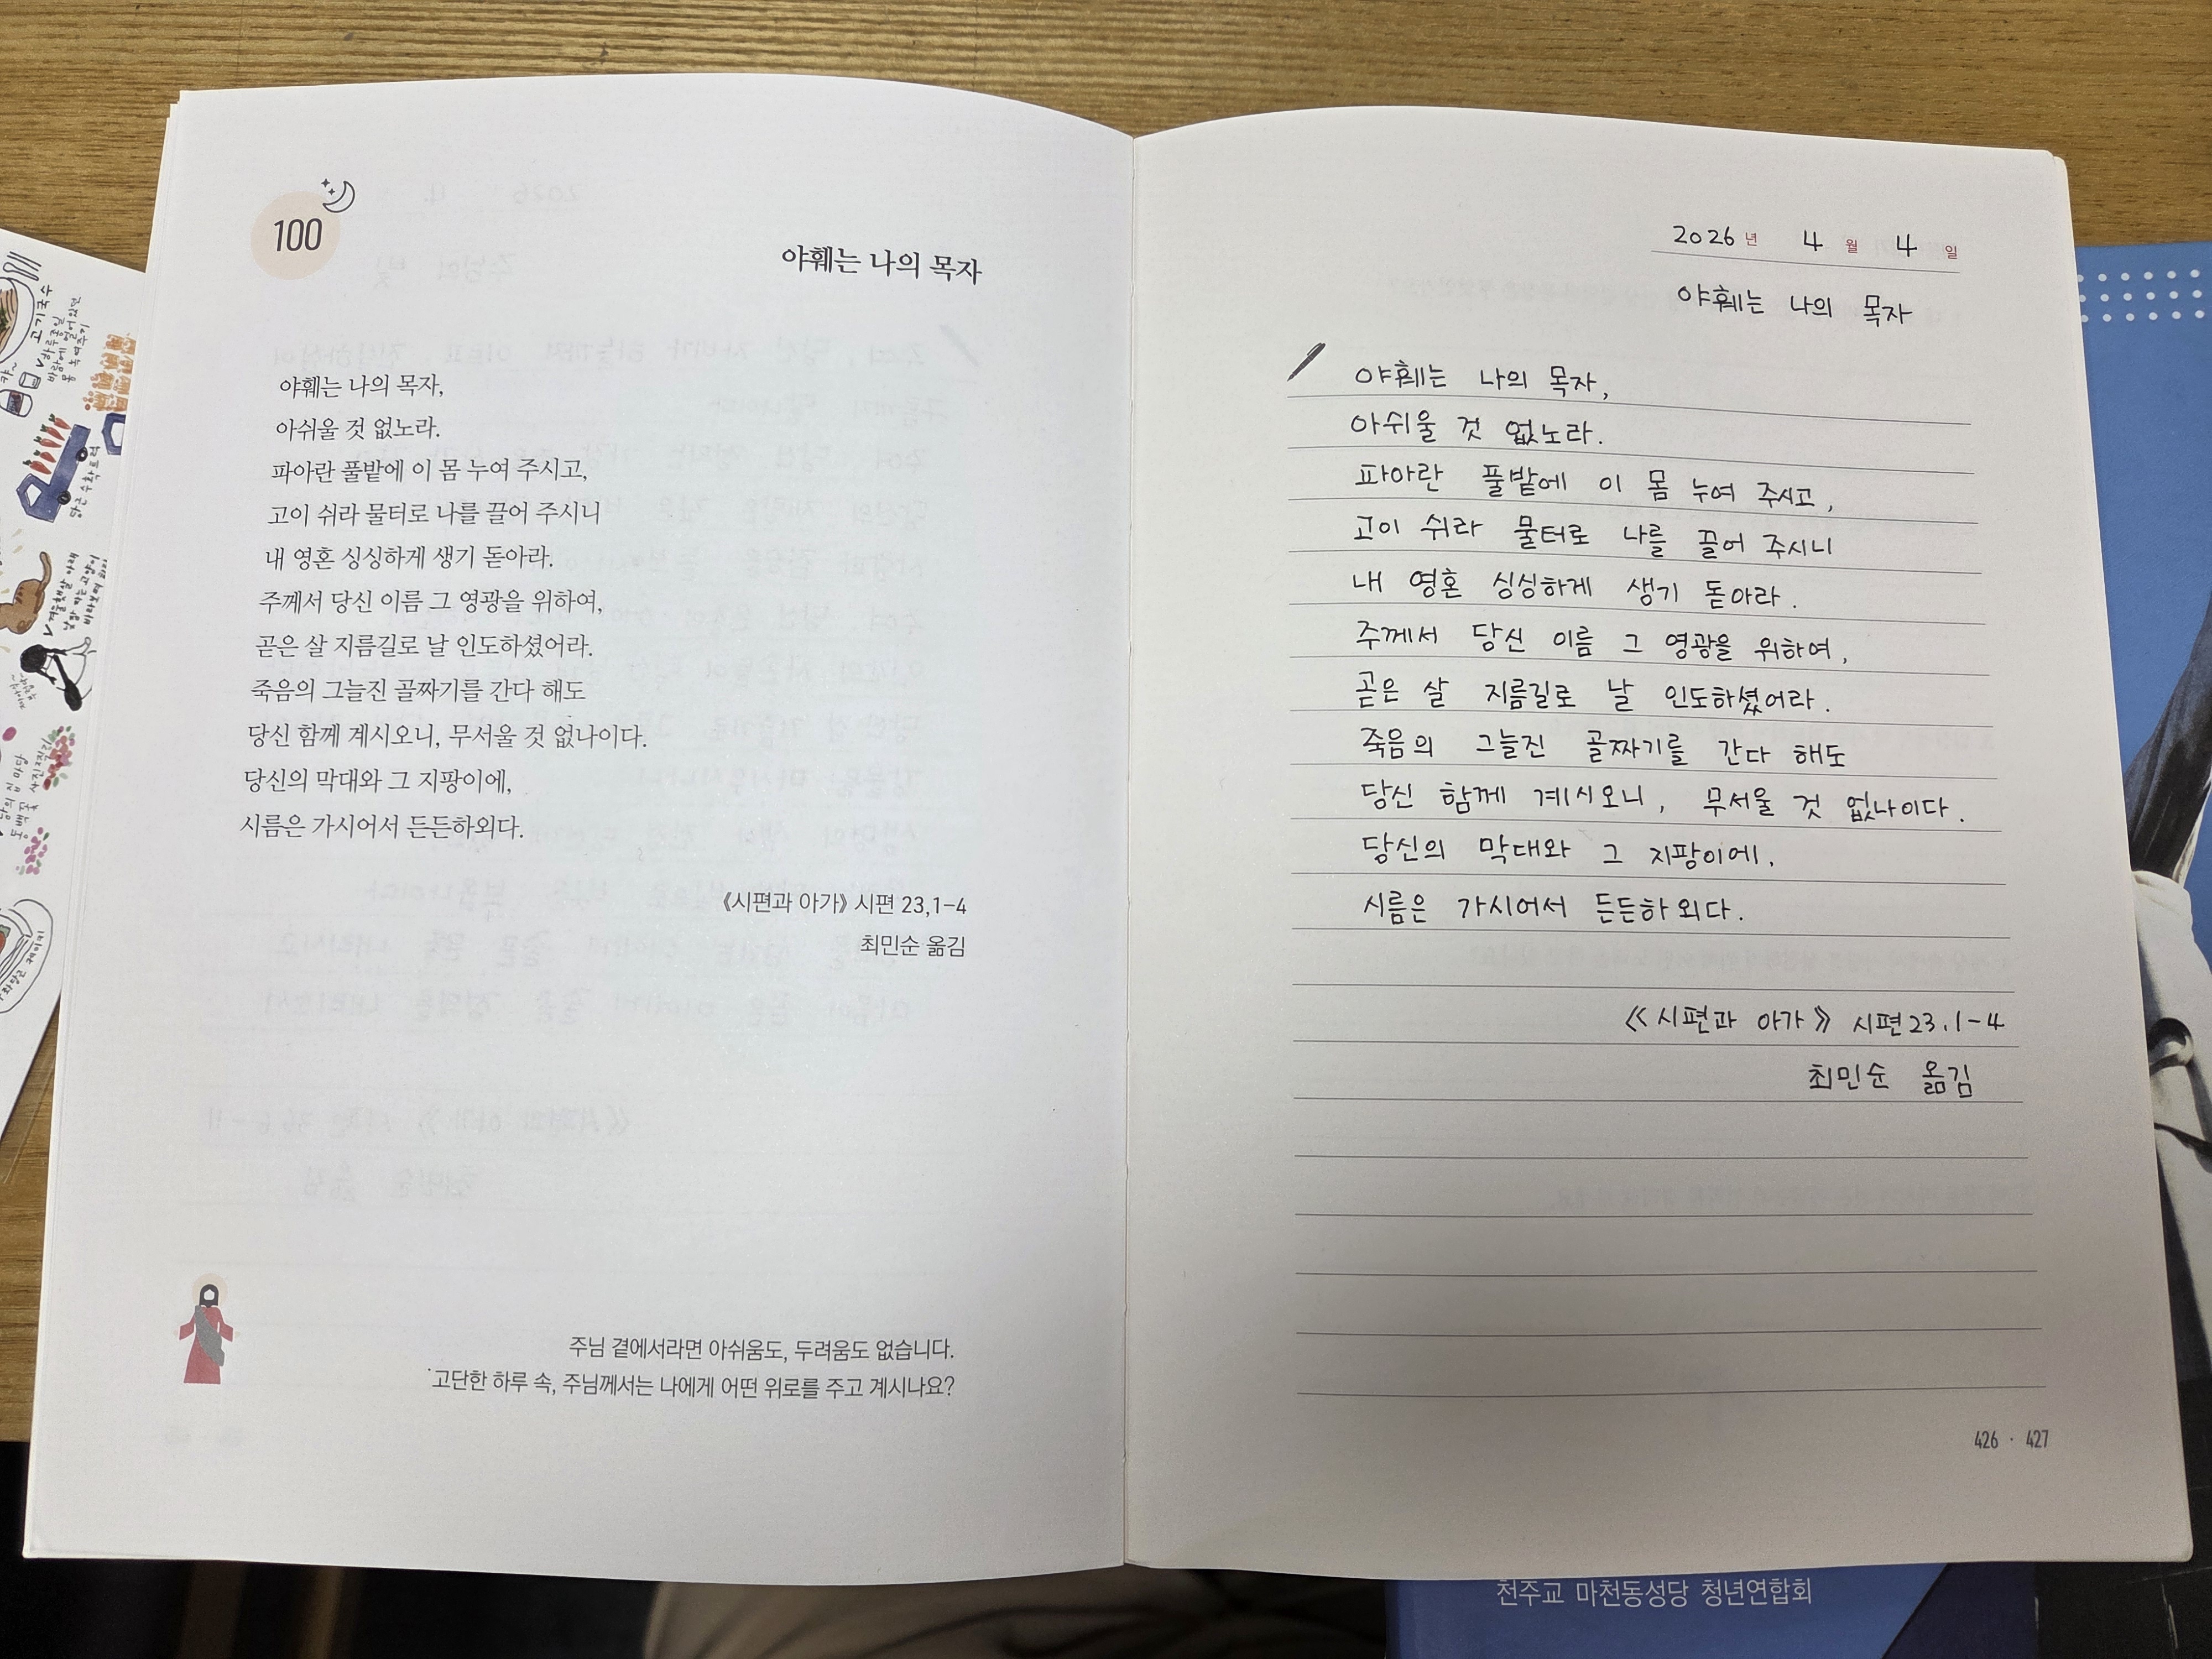 100
야훼는 나의 목자
야훼는 나의 목자,
아쉬울 것 없노라.
파아란 풀밭에 이 몸 누여 주시고,
고이 쉬라 물터로 나를 끌어 주시니
내 영혼 싱싱하게 생기 돋아라.
주께서 당신 이름 그 영광을 위하여,
곧은 살 지름길로 날 인도하셨어라.
죽음의 그늘진 골짜기를 간다 해도
당신 함께 계시오니, 무서울 것 없나이다.
당신의 막대와 그 지팡이에,
시름은 가시어서 든든하외다.
《시편과 아가》 시편 23,1-4
최민순 옮김
주님 곁에서라면 아쉬움도, 두려움도 없습니다.
고단한 하루 속, 주님께서는 나에게 어떤 위로를 주고 계시나요?
2026년 4월 4일
야훼는 나의 목자
야훼는 나의 목자,
아쉬울 것 없노라.
파아란 풀밭에 이 몸 누여 주시고,
고이 쉬라 물터로 나를 끌어 주시니
내 영혼 싱싱하게 생기 돋아라.
주께서 당신 이름 그 영광을 위하여,
곧은 살 지름길로 날 인도하셨어라.
죽음의 그늘진 골짜기를 간다 해도
당신 함께 계시오니, 무서울 것 없나이다.
당신의 막대와 그 지팡이에,
시름은 가시어서 든든하외다.
《시편과 아가》 시편 23,1-4
최민순 옮김
426 · 427
천주교 마천동성당 청년연합회
고기국수
하루종일
바람에 얼어있던
몸 녹여주기
당근 수확트럭
겨울햇살 아래
동백꽃 사진찍기